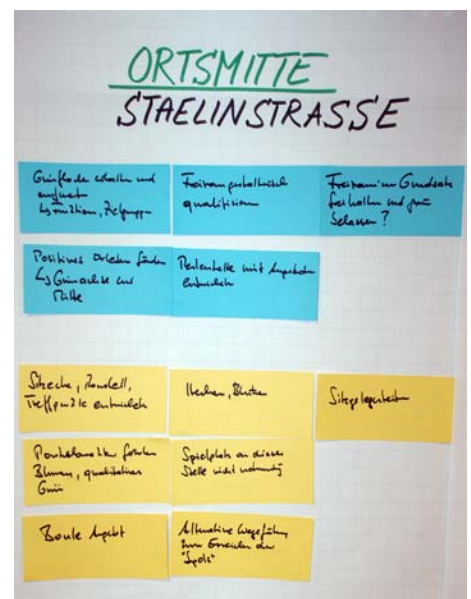 ORTSMITTE
STAELINSTRASSE
Grünfläche erhalten und
Freiraumgestalterisch
qualifizieren
Freiraum im Grundsatz
freihalten und grün
belassen?
Positives Erleben fördern
↳ Grünachse zur
Mitte
Perlenkette mit Angeboten
entwickeln
Sitzecke, Rondell,
Treffpunkte entwickeln
Hecken, Blumen
Sitzgelegenheiten
fördern
Blumen, qualitatives
Grün
Spielplatz an dieser
Stelle nicht notwendig
Boule Angebot
Alternative Wegeführung
zum Erreichen der